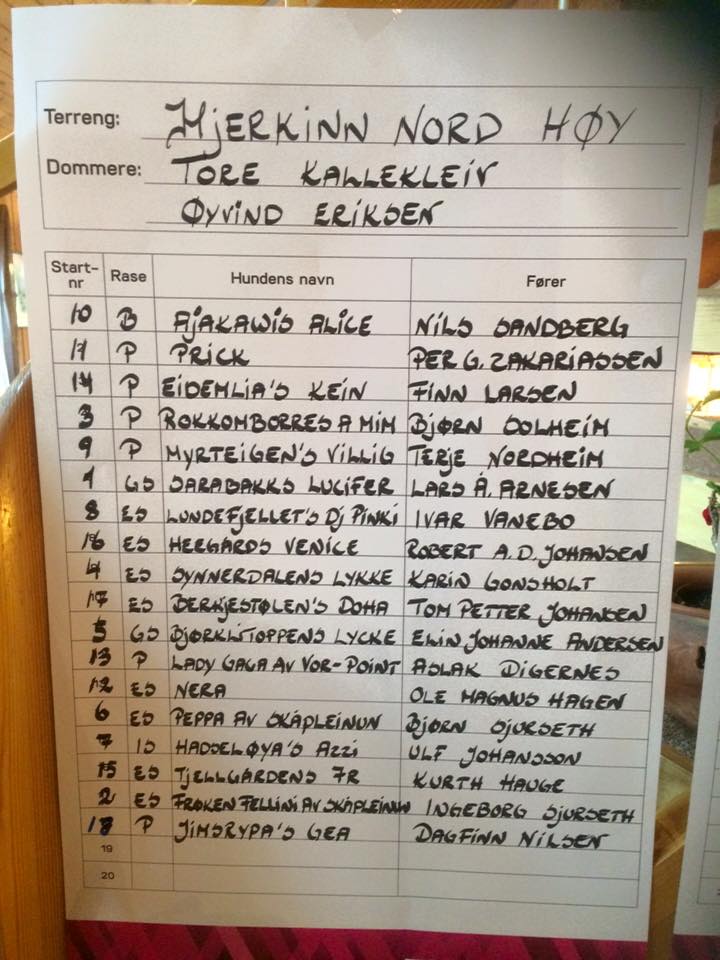 Terreng: HJERKINN NORD HØY
Dommere: TORE KALLEKLEIV
ØYVIND ERIKSEN
Start-nr Rase Hundens navn Fører
10 B AJAKAWIS ALICE NILS SANDBERG
11 P PRICK PER G. ZAKARIASSEN
14 P EIDEMLIA'S KEIN FINN LARSEN
3 P ROKKOMBORRES A MIM BJØRN SOLHEIM
9 P MYRTEIGEN'S VILLIG TERJE NORDHEIM
1 GS SARABAKKS LUCIFER LARS Å. ARNESEN
8 ES LUNDEFJELLET'S DJ PINKI IVAR VANEBO
16 ES HEEGÅRDS VENICE ROBERT A.D. JOHANSEN
4 ES SYNNERDALENS LYKKE KARIN GONSHOLT
17 ES BERKJESTØLEN'S DOHA TOM PETTER JOHANSEN
5 GS BJØRKLITOPPENS LYCKE ELIN JOHANNE ANDERSEN
13 P LADY GAGA AV VOR-POINT ASLAK DIGERNES
12 ES NERA OLE MAGNUS HAGEN
6 ES PEPPA AV SKÅPLEINUN BJØRN SJURSETH
7 IS HADSELØYA'S AZZI ULF JOHANSSON
15 ES TJELLGÅRDENS 7R KURTH HAUGE
2 ES FRØKEN FELLINI AV SKÅPLEINUN INGEBORG SJURSETH
18 P JIMSRYPA'S GEA DAGFINN NILSEN
19
20